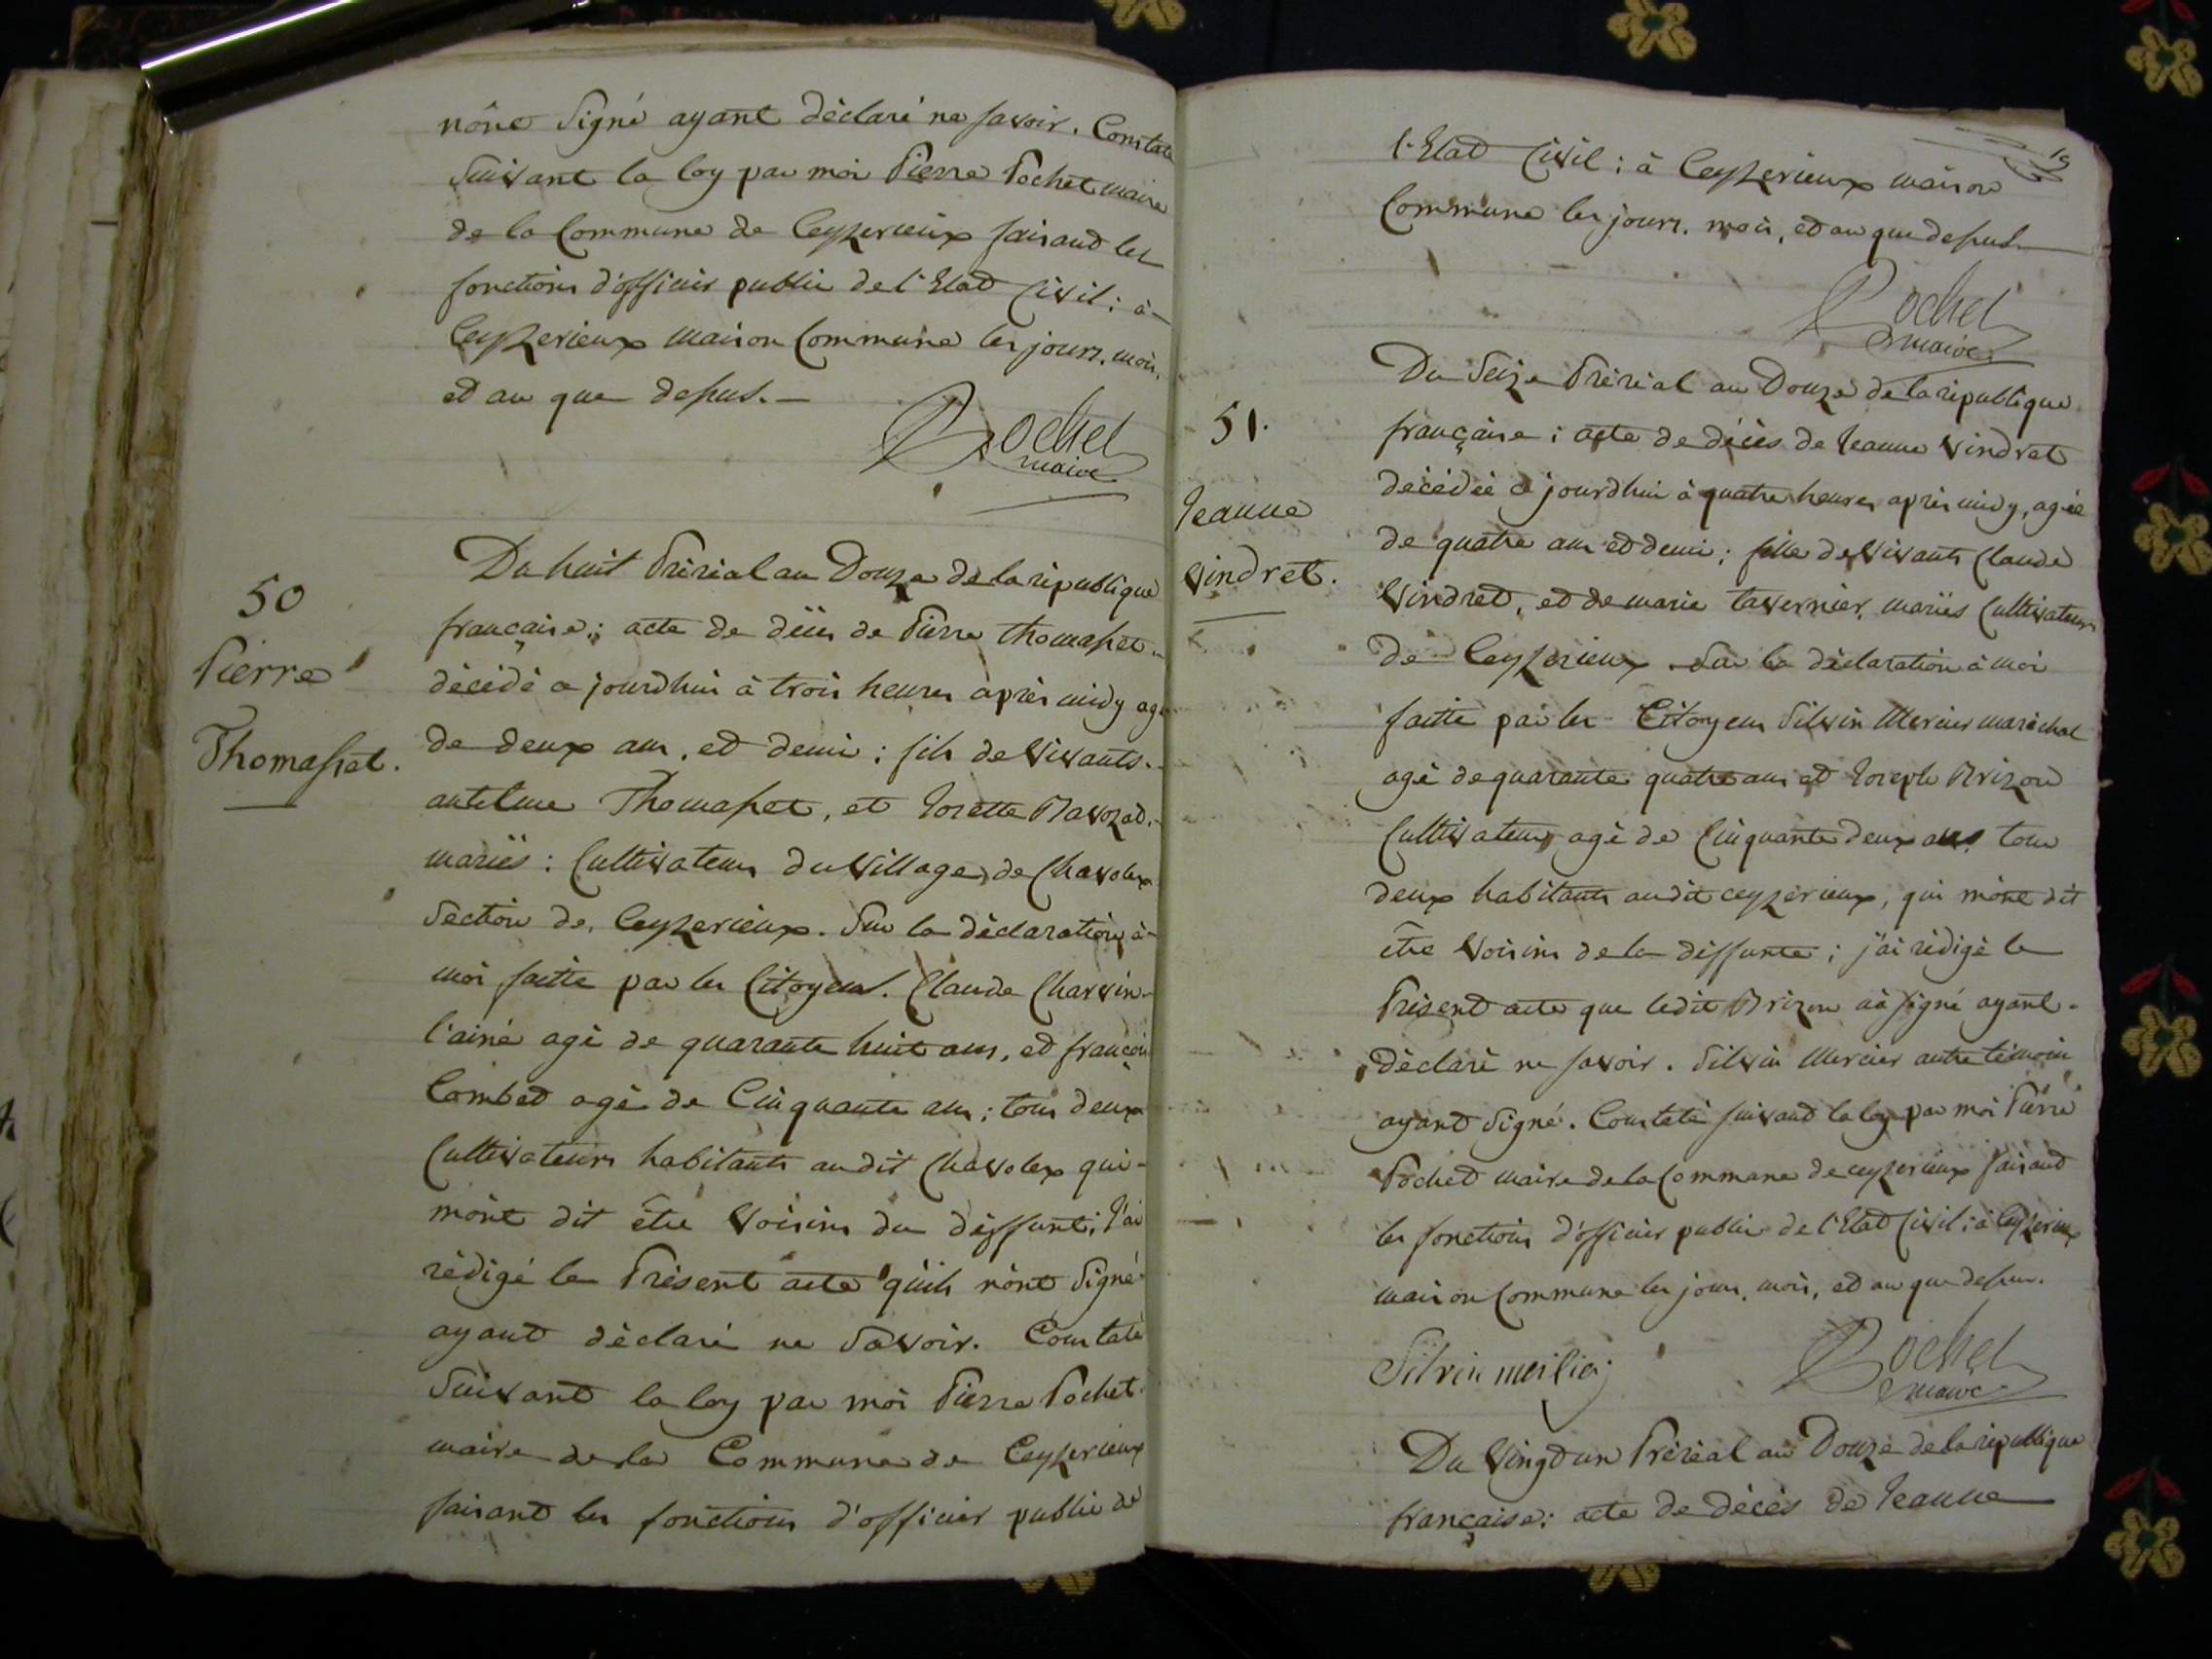 nônt Signé ayant dèclaré ne savoir. Constaté
Suivant la loy par moi Pierre Pochet maire
de la Commune de Ceyzerieux faisant les
fonctions d'officier public de l'Etat Civil; à
Ceyzerieux maison Commune les jours, mois,
et an que dessus.
Pochet
maire
50
Pierre
Thomasset.
Du huit Prèrial an Douze de la rèpublique
française; acte de décès de Pierre Thomasset
dècèdé ce jourdhui à trois heures après midy agé
de deux ans, et demi; fils de vivants
antelme Thomasset, et Josette Ravozat
mariës: Cultivateurs du village de Chavolex
Section de Ceyzerieux. Sur la dèclaration à
moi faitte par les Citoyens Claude Charvin
l'ainé agé de quarante huit ans, et françois
Combet agé de Cinquante ans; tous deux
Cultivateurs habitants audit Chavolex qui
mônt dit être voisins du dèffunt; J'ai
rèdigé le Prèsent acte qu'ils nônt Signé
ayant dèclaré ne Savoir. Constaté
Suivant la loy par moi Pierre Pochet
maire de la Commune de Ceyzerieux
faisant les fonctions d'officier public de
19
l'Etat Civil; à Ceyzerieux maison
Commune les jours, mois, et an que dessus.
Pochet
maire
51.
Jeanne
Vindret.
Du Seize Prèrial an Douze de la rèpublique
française; acte de dècès de Jeanne Vindret
dècèdèe ce jourdhui à quatre heures après midy, agée
de quatre ans et demi; fille de vivants Claude
Vindret, et de marie tavernier, mariës Cultivateurs
de Ceyzerieux. Sur la dèclaration à moi
faitte par les Citoyens Silvin Mercier marèchal
agé de quarante quatre ans et Joseph Brizon
Cultivateur agé de Cinquante deux ans tous
deux habitants audit ceyzèrieux, qui mônt dit
être voisins de la dèffunte; j'ai rèdigé le
Prèsent acte que ledit Brizon n'a signé ayant
dèclaré ne savoir. Silvin Mercier autre tèmoin
ayant Signé. Constaté suivant la loy par moi Pierre
Pochet maire de la Commune de ceyzerieux faisant
les fonctions d'officier public de l'Etat Civil; à Ceyzerieux
maison Commune les jours, mois, et an que dessus.
Silvin
Pochet
maire
Du Vingt un Prèrial an Douze de la rèpublique
française; acte de dècès de Jeanne